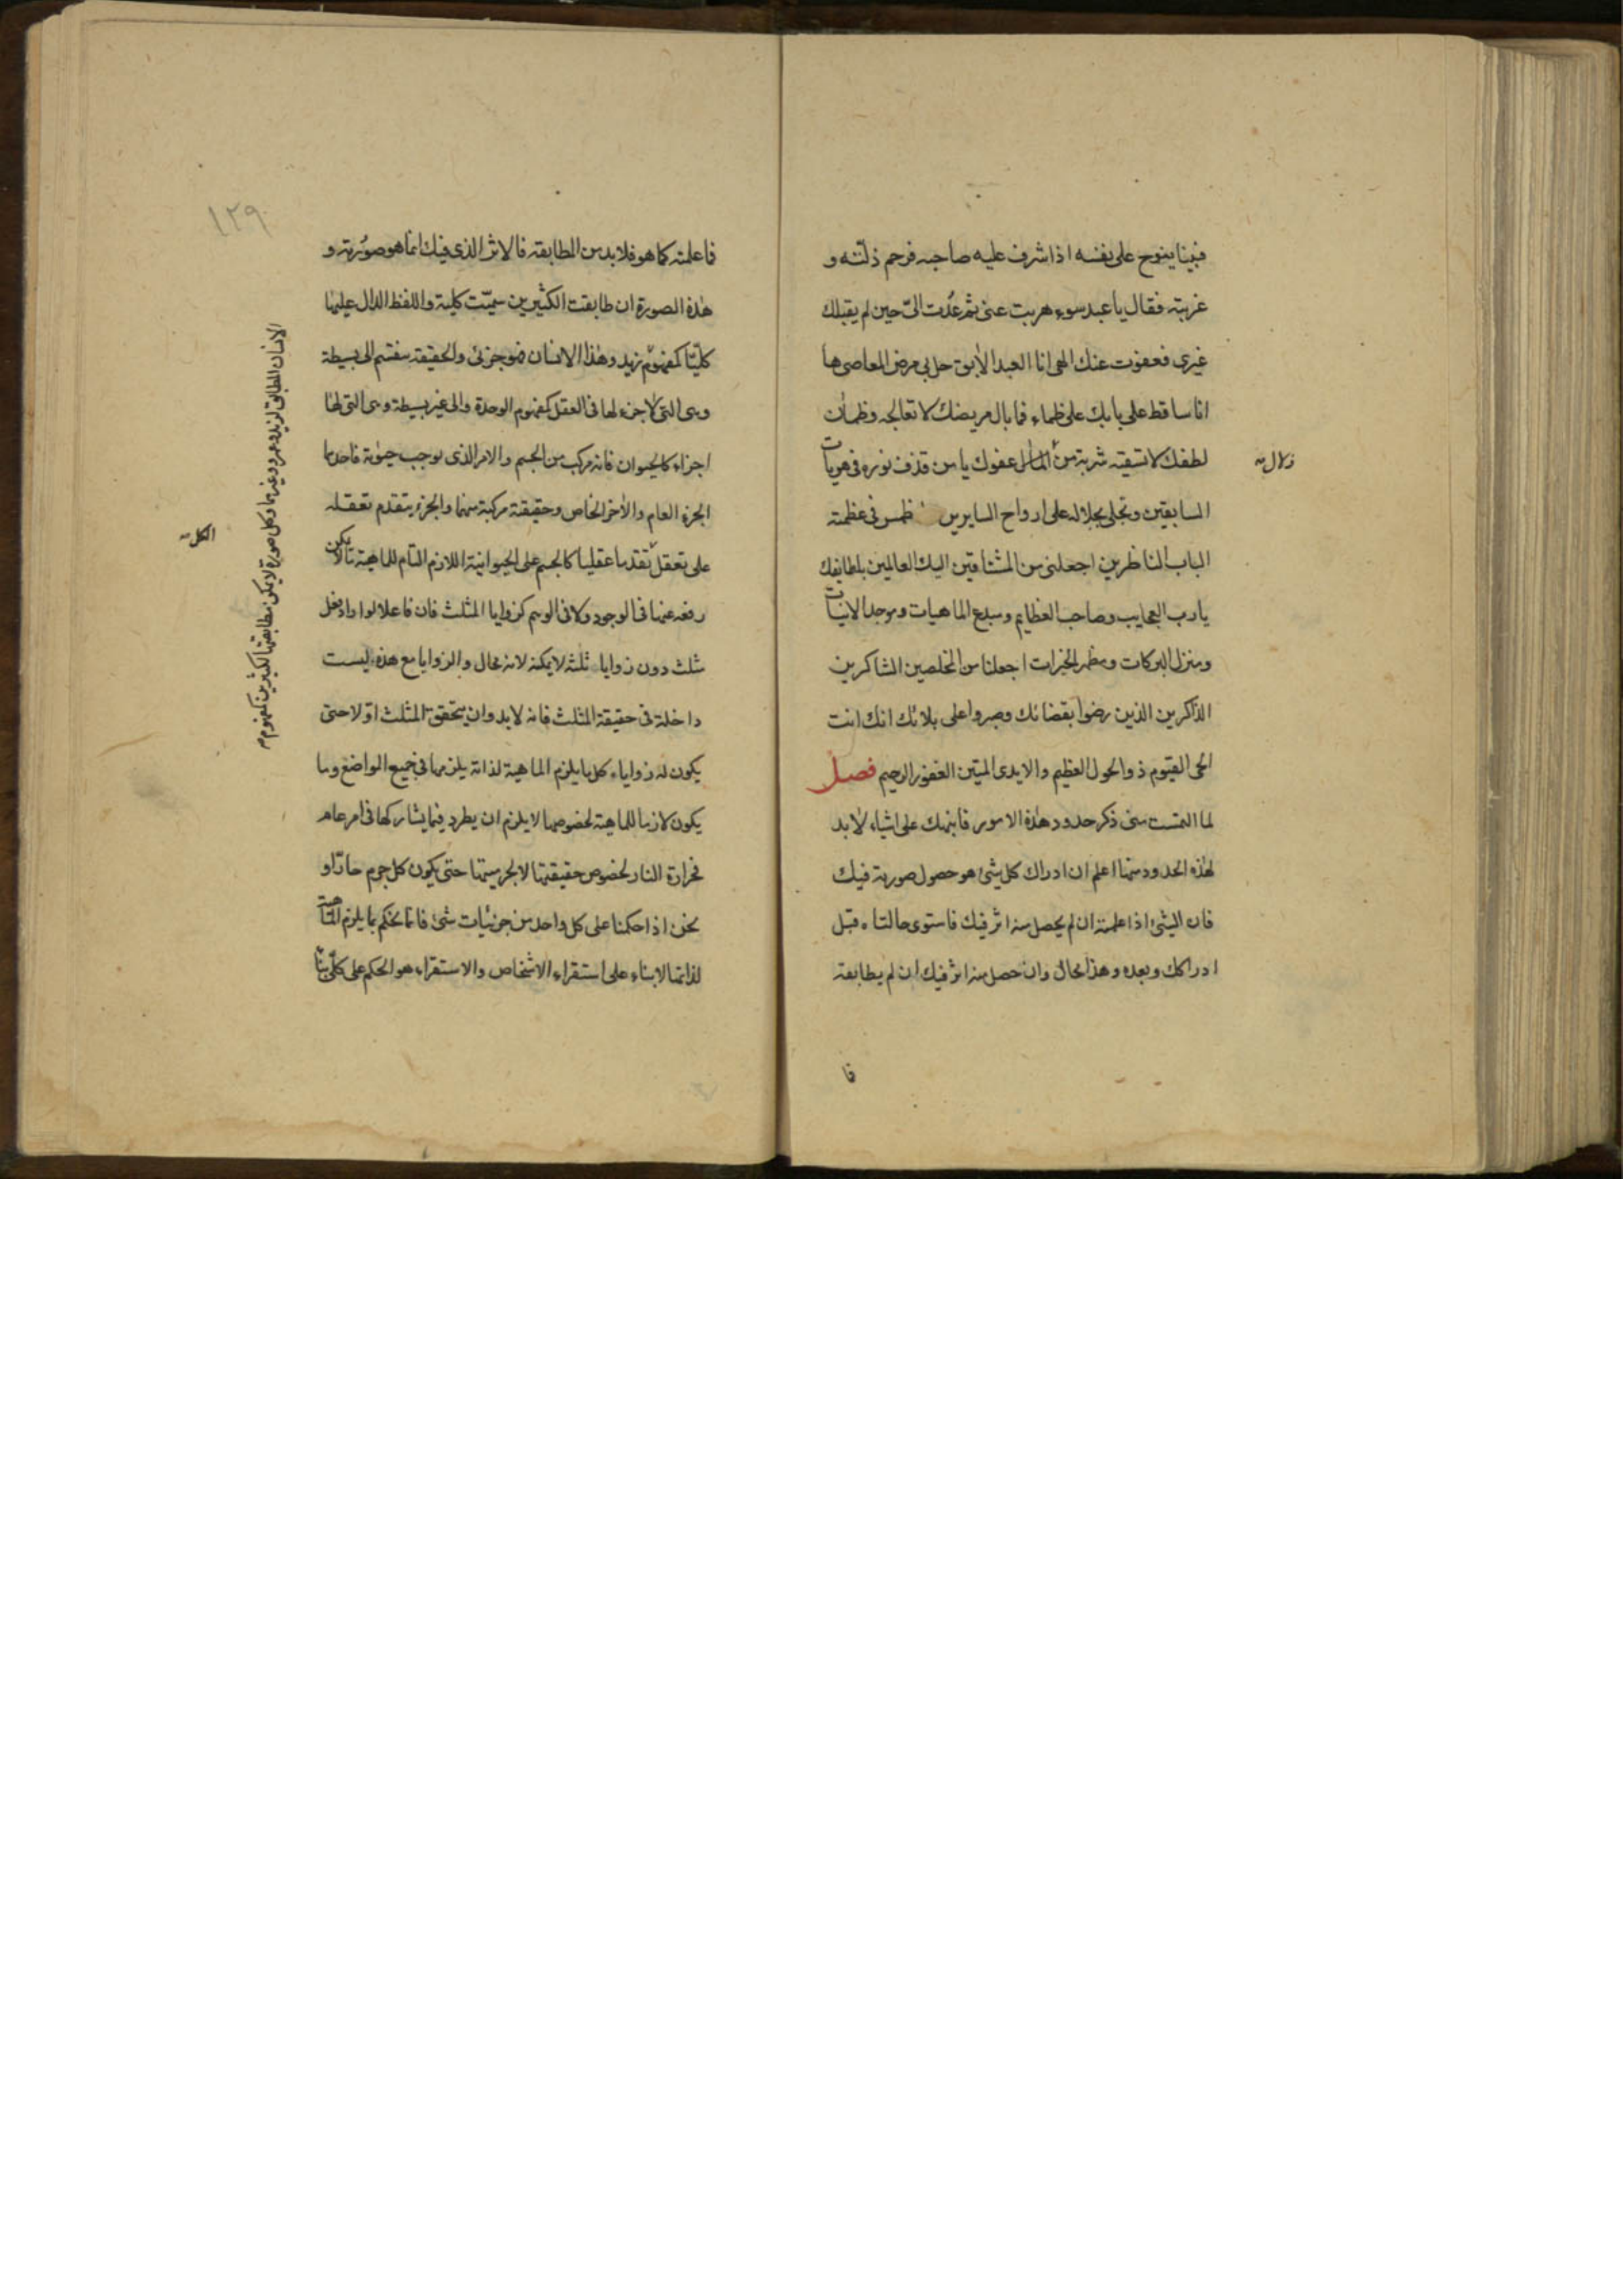 فبينا ينوح على نفسه اذا شرف عليه صاحبه فرحم ذلته و
غربته فقال يا عبد سوء هربت عنى ثم عُدت الىّ حين لم يقبلك
غيرى فعفوت عنك الهى انا العبد الابق حل بى مرض المعاصى ها
انا ساقط على بابك على ظماء فما بال مريضك لا تعالجه وظمأن
لطفك لا تسقته شربة من عفوك يا من قذف نوره فى هويات
زلال
السابقين وتجلى بجلاله على ارواح السايرين طمس فى عظمته
الباب الناظرين اجعلنى من المشتاقين اليك العالمين بلطايفك
يا رب العجايب وصاحب العظايم ومبدع الماهيات وموجد الانيات
ومنزل البركات ومظهر الخيرات اجعلنا من المخلصين الشاكرين
الذاكرين الذين رضوا بقضائك وصبروا على بلائك انك انت
الحى القيوم ذو الحول العظيم والايدى المتين الغفور الرحيم فصل
لما التمست منى ذكر حدود هذه الامور فابنهك على اشياء لا بد
لهذه الحدود منها اعلم ان ادراك كل شئ هو حصول صورته فيك
فان الشئ اذا علمته ان لم يحصل منه اثر فيك فاستوى حالتاه قبل
ادراكك وبعده وهذا محال وان حصل منه اثر فيك ان لم يطابقه
فا
١٢٩
فاعلمته كما هو فلا بد من المطابقة فالاثر الذى فيك انما هو صورته و
هذه الصورة ان طابقت الكثيرين سميّت كلية واللفظ الدال عليها
كليّا كمفهوم زيد وهذا الانسان فهو جزئى والحقيقة منقسم الى بسيطة
الانسان المطابق لزيد وعمرو وغيرهما وكل صورة لا يمكن مطابقتها لكثيرين كمفهوم
وهى التى لا جزء لها فى العقل كمفهوم الوحدة والى غير بسيطة وهى التى لها
اجزاء كالحيوان فانه مركب من الجسم والامر الذى يوجب حيوته فاحدهما
الجزء العام والاخر الخاص وحقيقة مركبة منهما والجزء يتقدم تعقله
على تعقل تقدما عقليا كالجسم على الحيوانية اللازم التام للماهية ما لا يمكن
الكل
رفعه عنها فى الوجود ولا فى الوهم كزوايا المثلث فان فاعلا لو اراد يجعل
مثلث دون زوايا ثلثه لا يمكنه لانه محال والزوايا مع هذه ليست
داخلة فى حقيقة المثلث فانه لا بد وان يتحقق المثلث اوّلا حتى
يكون له زواياء كل ما يلزم الماهية لذاته يلزمها فى جميع المواضع وما
يكون لازما للماهية لخصوصها لا يلزم ان يطرد فيما يشاركها فى امر عام
فحرارة النار لخصوص حقيقتها لا لجرميتها حتى يكون كل جرم حارّا و
نحن اذا حكمنا على كل واحد من جزئيات شئ فانّا نحكم بما يلزم الماهية
لذاتها لا بناء على استقراء الاشخاص والاستقراء هو الحكم على كلّى بما